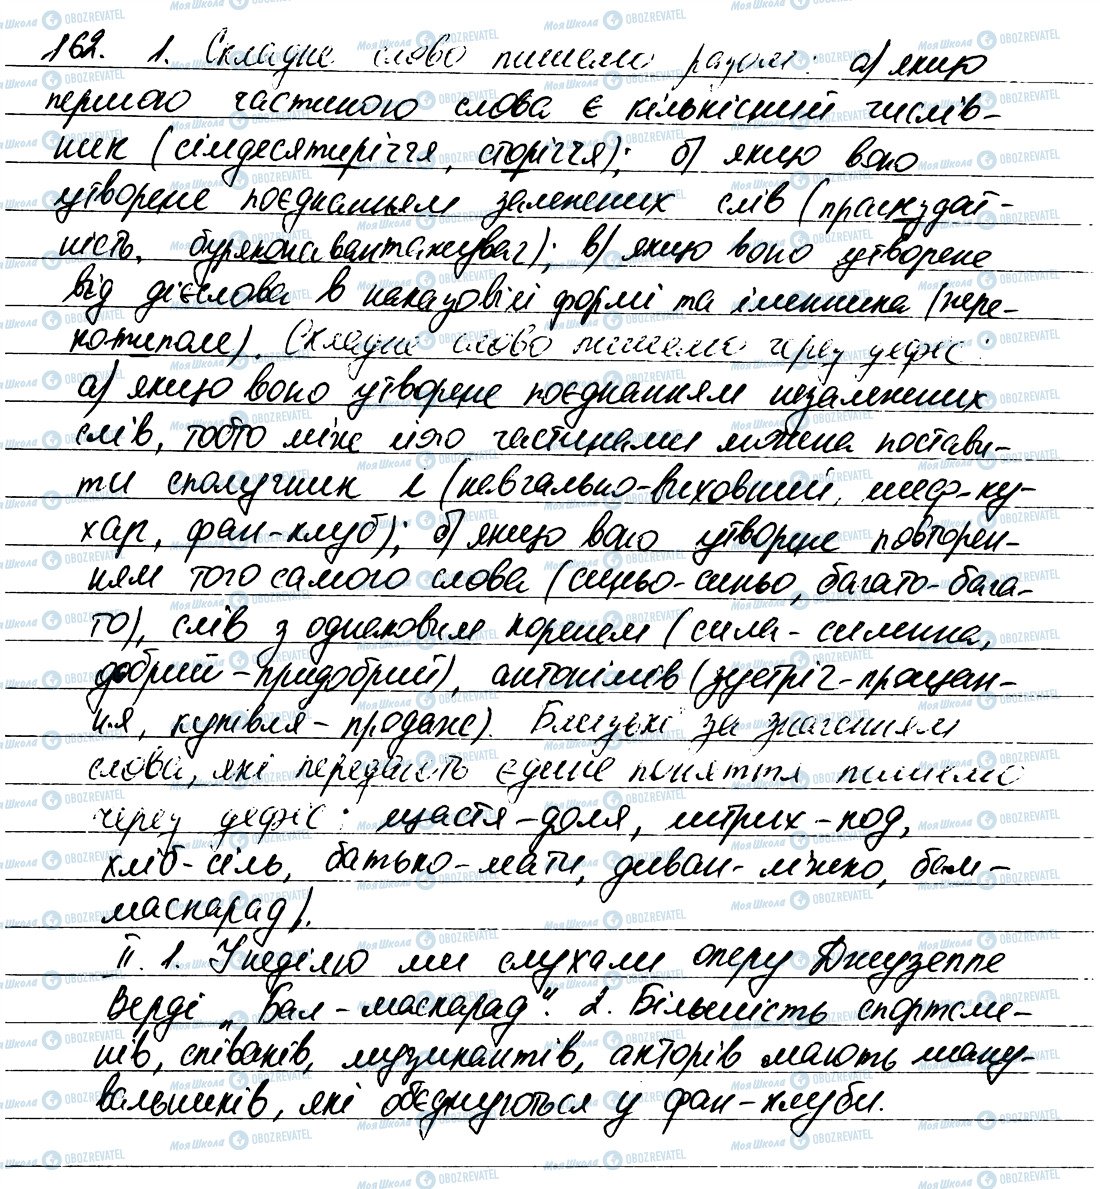 162. 1. Складне слово пишемо разом: а) якщо
першою частиною слова є кількісний числів-
ник (сімдесятиріччя, сторіччя); б) якщо воно
утворене поєднанням залежних слів (працездат-
ність, буряконавантажувач); в) якщо воно утворене
від дієслова в наказовій формі та іменника (пере-
котиполе). Складне слово пишемо через дефіс:
а) якщо воно утворене поєднанням незалежних
слів, тобто між його частинами можна постави-
ти сполучник і (навчально-виховний, шеф-ку-
хар, фан-клуб); б) якщо воно утворене повторен-
ням того самого слова (синьо-синьо, багато-бага-
то), слів з однаковим коренем (сила-силенна,
добрий-придобрий), антонімів (зустріч-прощан-
ня, купівля-продаж). Близькі за значенням
слова, які передають єдине поняття пишемо
через дефіс: щастя-доля, штрих-код,
хліб-сіль, батько-мати, диван-ліжко, бал-
маскарад).
II. 1. У неділю ми слухали оперу Джузеппе
Верді „Бал-маскарад". 2. Більшість спортсме-
нів, співаків, музикантів, акторів мають шану-
вальників, які об'єднуються у фан-клуби.